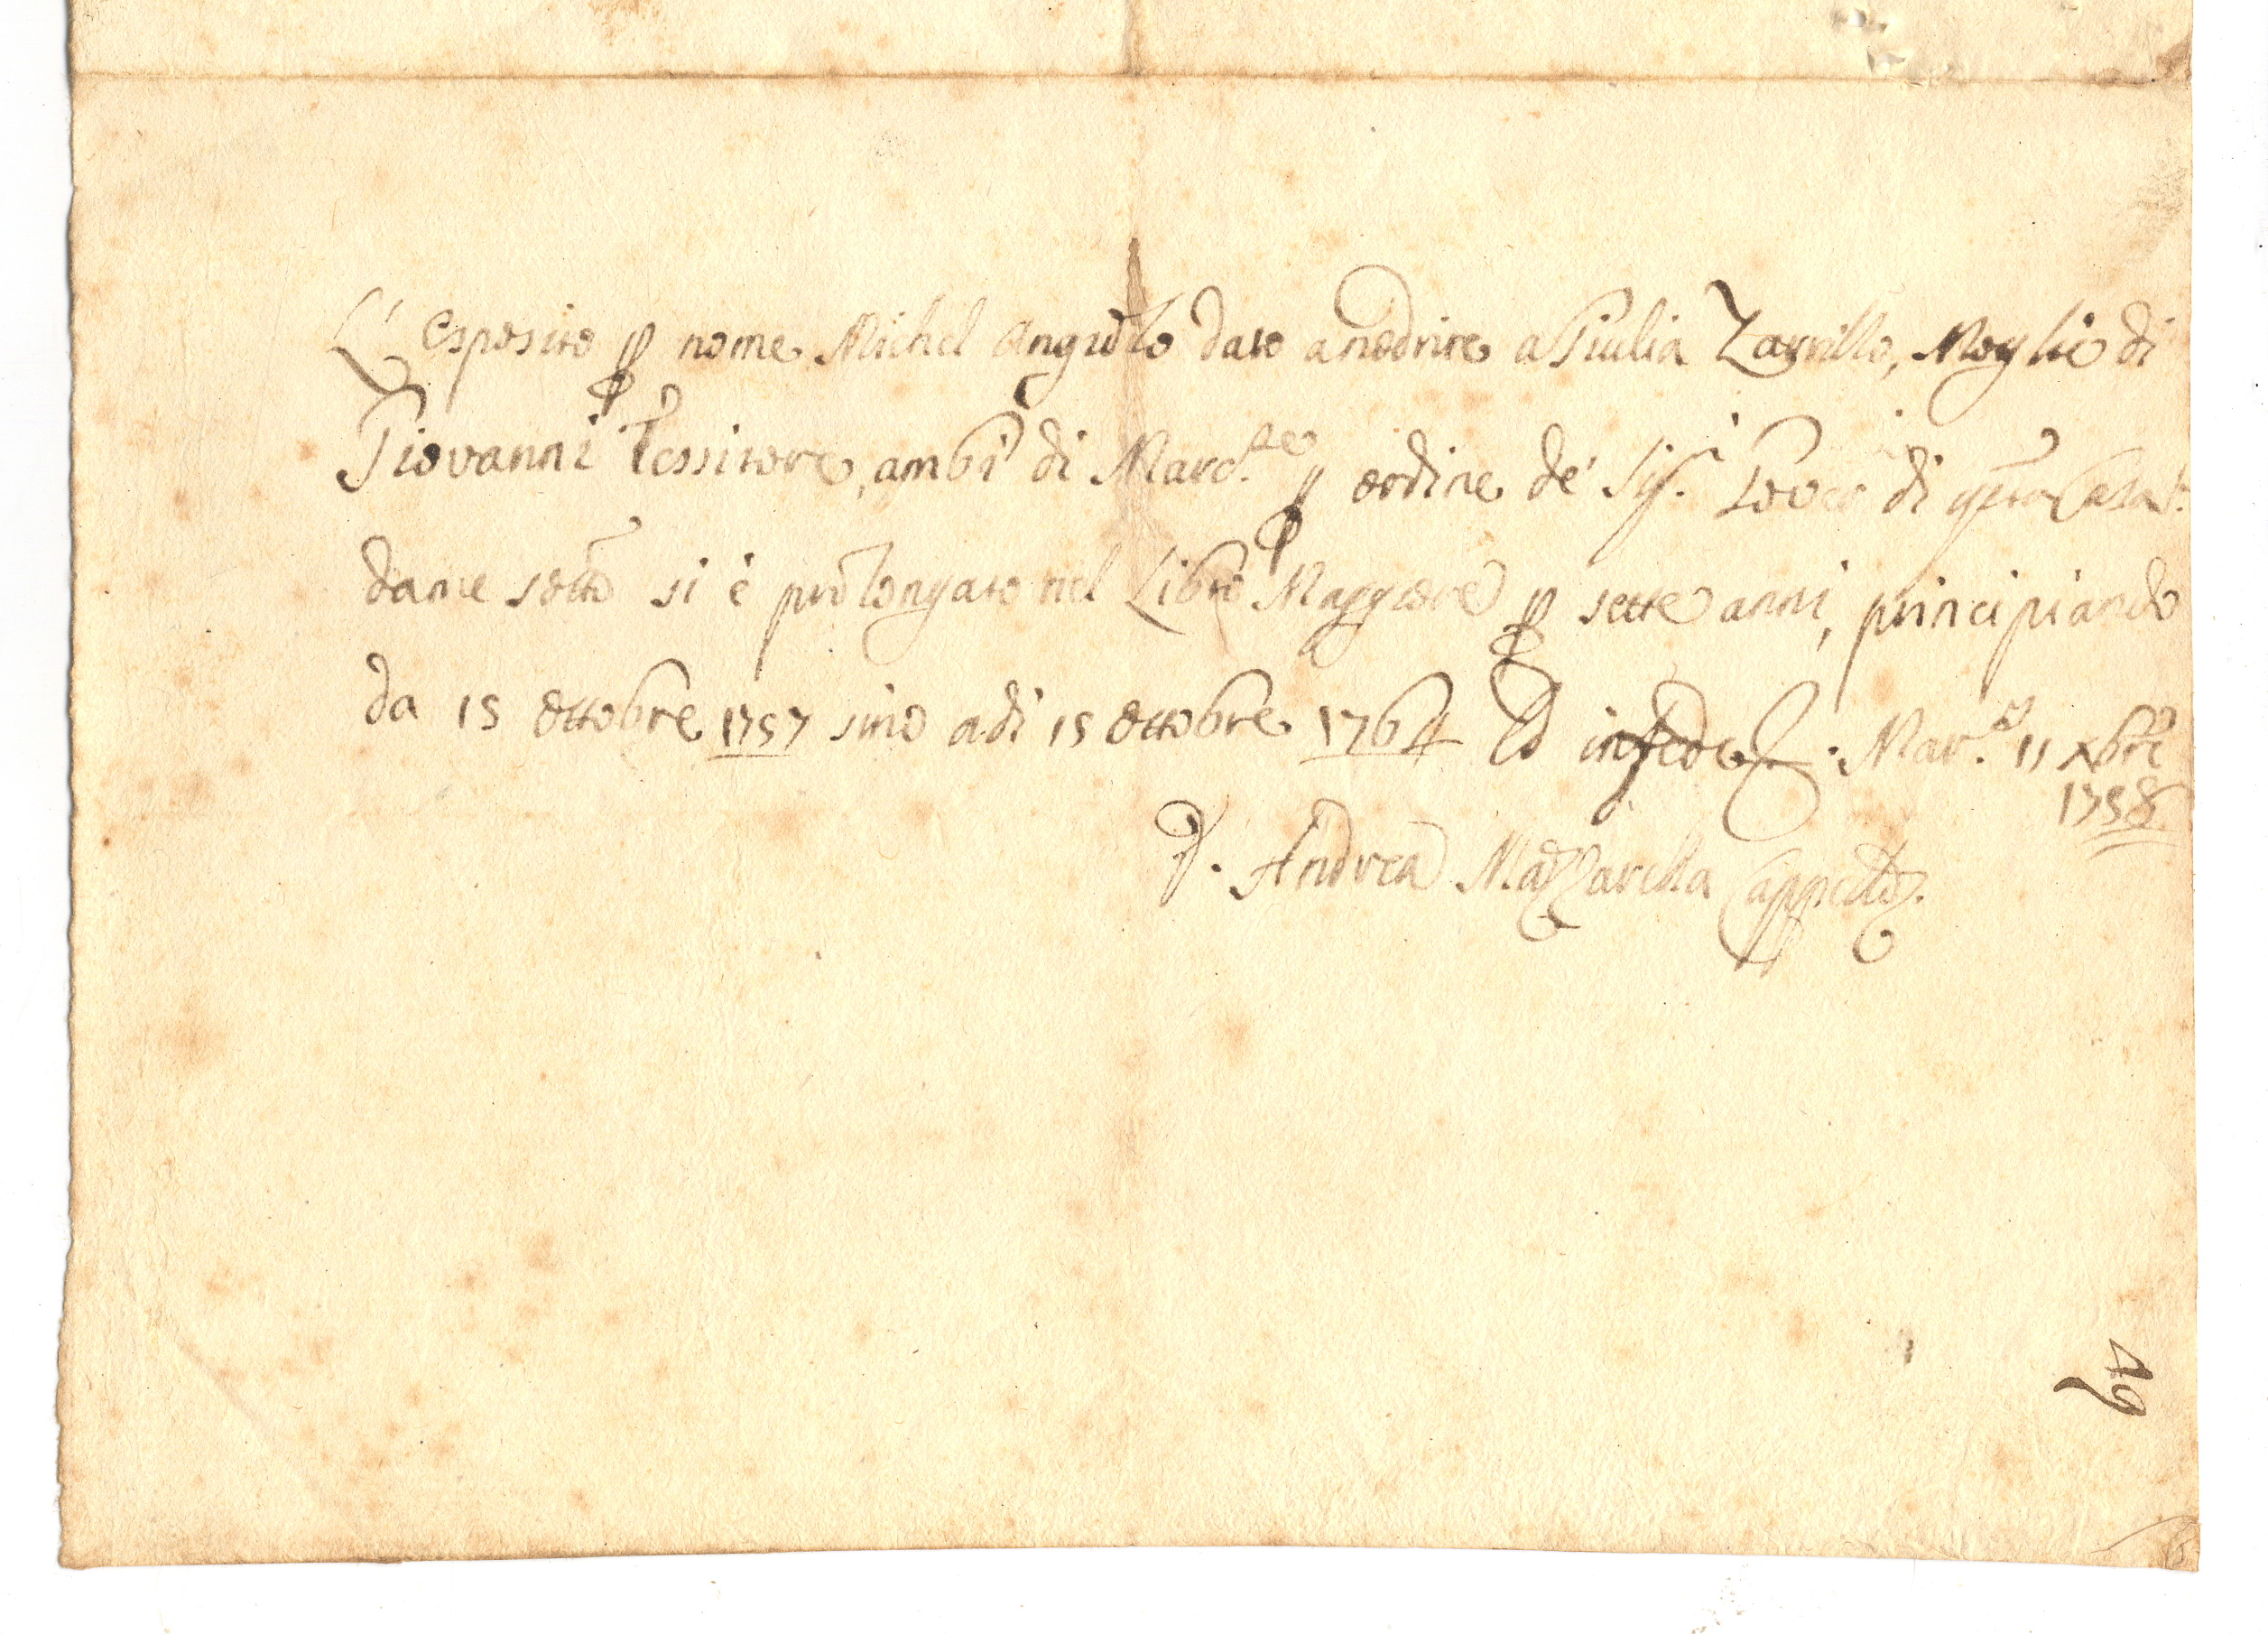 L'esposito ꝑ nome Michel Angiolo dato a nodrire a Giulia Zarrillo, Moglie di
Giovanni Tessitore, ambi di Marc.se ꝑ ordine de' Sig.i Gov.i di q̃sta Casa
da me sotto si è prolongato nel Libro Maggiore ꝑ sette anni, principiando
da 15 Ottobre 1757 sino a di 15 Ottobre 1764 Ed in fede Mar.e 11 Xbre
1758
D. Andrea Mazzarella
49